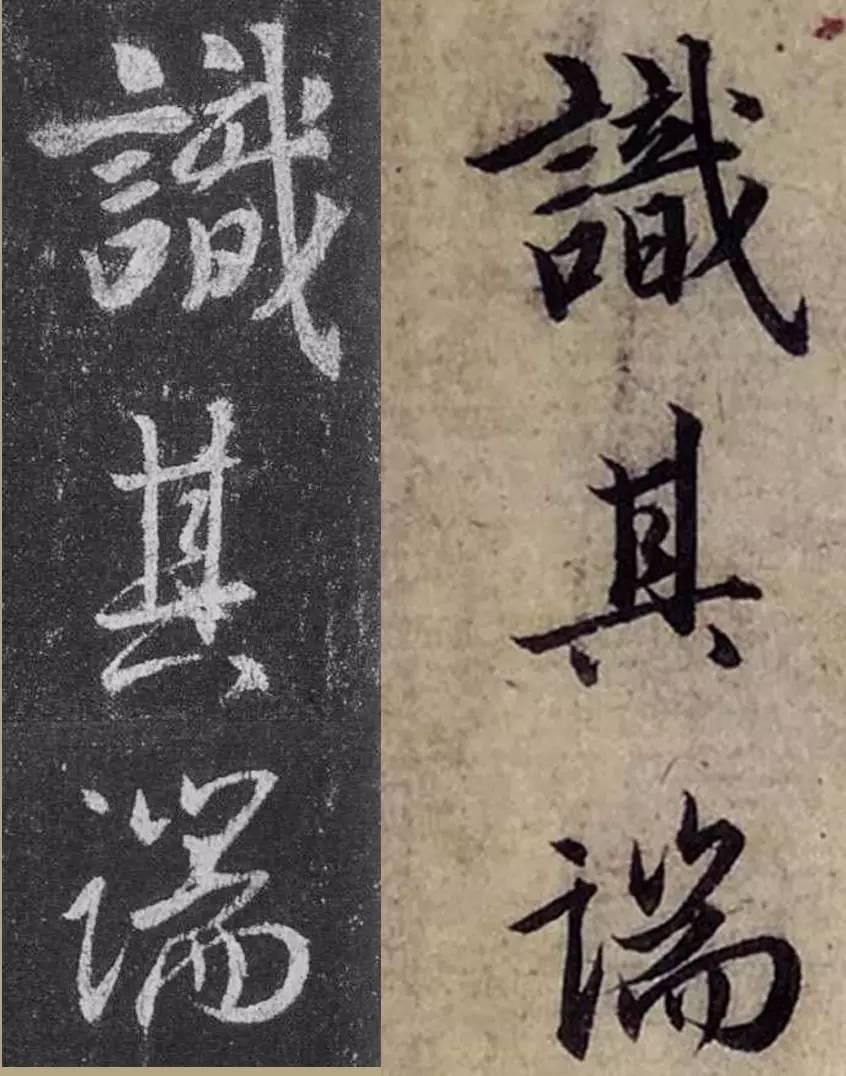 識其端
識其端